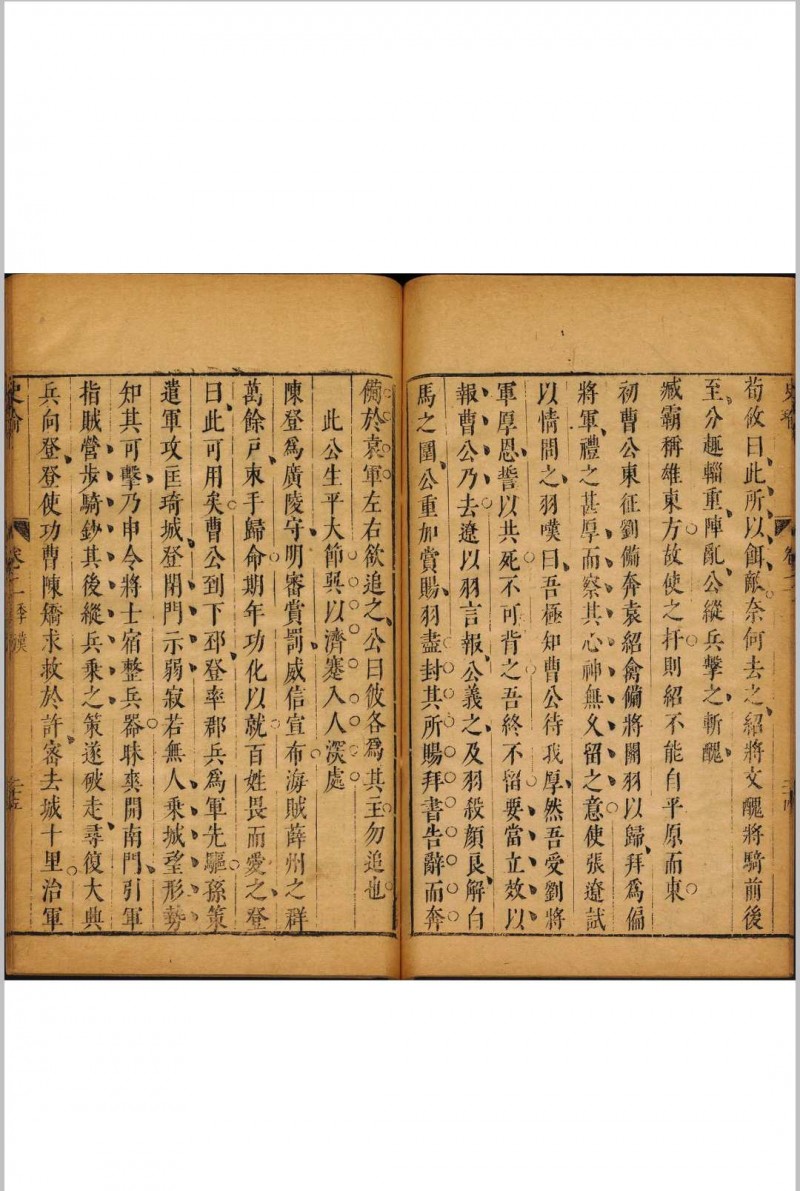 荀攸曰此所以餌敵奈何去之紹將文醜將騎前後
至分趣輜重陣亂公縱兵擊之斬醜
臧霸稱雄東方故使之扞則紹不能自平原而東
初曹公東征劉備奔袁紹禽備將關羽以歸拜為偏
將軍禮之甚厚而察其心神無久留之意使張遼試
以情問之羽嘆曰吾極知曹公待我厚然吾受劉將
軍厚恩誓以共死不可背之吾終不留要當立效以
報曹公乃去遼以羽言報公義之及羽殺顏良解白
馬之圍公重加賞賜羽盡封其所賜拜書告辭而奔
備於袁軍左右欲追之公曰彼各為其主勿追也
此公生平大節與以濟蹇入人深處
陳登為廣陵守明審賞罰威信宣布海賊薛州之群
萬餘戸束手歸命期年功化以就百姓畏而愛之登
曰此可用矣曹公到下邳登率郡兵為軍先驅孫策
遣軍攻匡琦城登閉門示弱寂若無人乘城望形勢
知其可擊乃申令將士宿整兵器昧爽開南門引軍
指賊營步騎鈔其後縱兵乘之策遂破走尋復大興
兵向登登使功曹陳矯求救於許審去城十里治軍
卷二 季漢